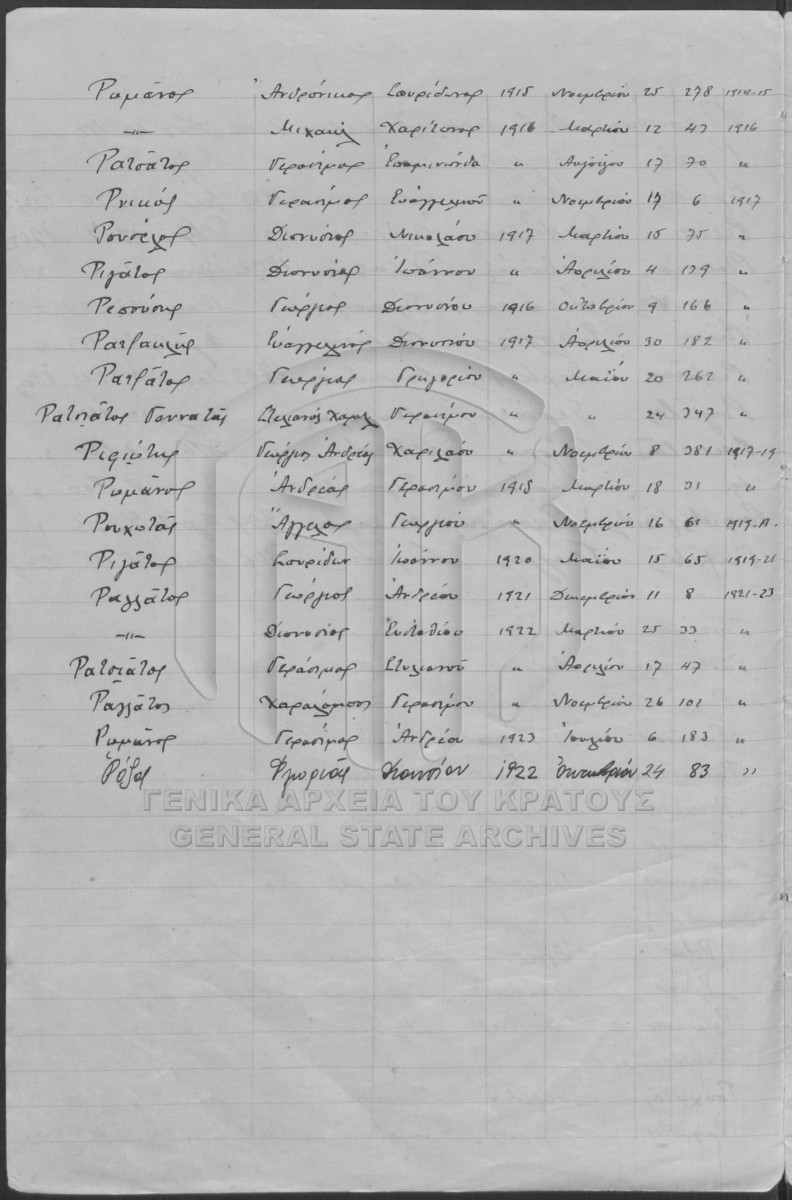 Ρωμᾶνος Ἀνδρόνικος Σπυρίδωνος 1915 Νοεμβρίου 25 278 1914-15
-〃- Μιχαήλ Χαρίτωνος 1916 Μαρτίου 12 47 1916
Ρατσᾶτος Γεράσιμος Ἐπαμινώνδα 〃 Αὐγούστου 17 70 〃
Γεράσιμος Εὐαγγελινοῦ 〃 Νοεμβρίου 17 6 1917
Ρουσέλος Διονύσιος Νικολάου 1917 Μαρτίου 15 75 〃
Ριγᾶτος Διονύσιος Ἰωάννου 〃 Ἀπριλίου 4 139 〃
Ρεπούσης Γεώργιος Διονυσίου 1916 Ὀκτωβρίου 9 166 〃
Ρατζακλῆς Εὐαγγελινός Διονυσίου 1917 Ἀπριλίου 30 182 〃
Ρατζᾶτος Γεώργιος Γρηγορίου 〃 Μαΐου 20 262 〃
Γερασίμου 〃 〃 24 347 〃
Ριφιώτης Γεώργιος Ἀνδρέας Χαριλάου 〃 Νοεμβρίου 8 381 1917-19
Ρωμᾶνος Ἀνδρέας Γερασίμου 1918 Μαρτίου 18 31 〃
Ρουχωτᾶς Ἄγγελος Γεωργίου 〃 Νοεμβρίου 16 61
Ριγᾶτος Σπυρίδων Ἰωάννου 1920 Μαΐου 15 65 1919-21
Ραλλᾶτος Γεώργιος Ἀνδρέου 1921 Δεκεμβρίου 11 8 1921-23
-〃- Διονύσιος Εὐσταθίου 1922 Μαρτίου 25 33 〃
Ρατσιᾶτος Γεράσιμος Στυλιανοῦ 〃 Ἀπριλίου 17 47 〃
Ραλλᾶτος Χαράλαμπος Γερασίμου 〃 Νοεμβρίου 26 101 〃
Ρωμᾶνος Γεράσιμος Ἀνδρέου 1923 Ἰουλίου 6 183 〃
Ρόζος Διονυσίου 1922 24 83 〃
ΓΕΝΙΚΑ ΑΡΧΕΙΑ ΤΟΥ ΚΡΑΤΟΥΣ
GENERAL STATE ARCHIVES